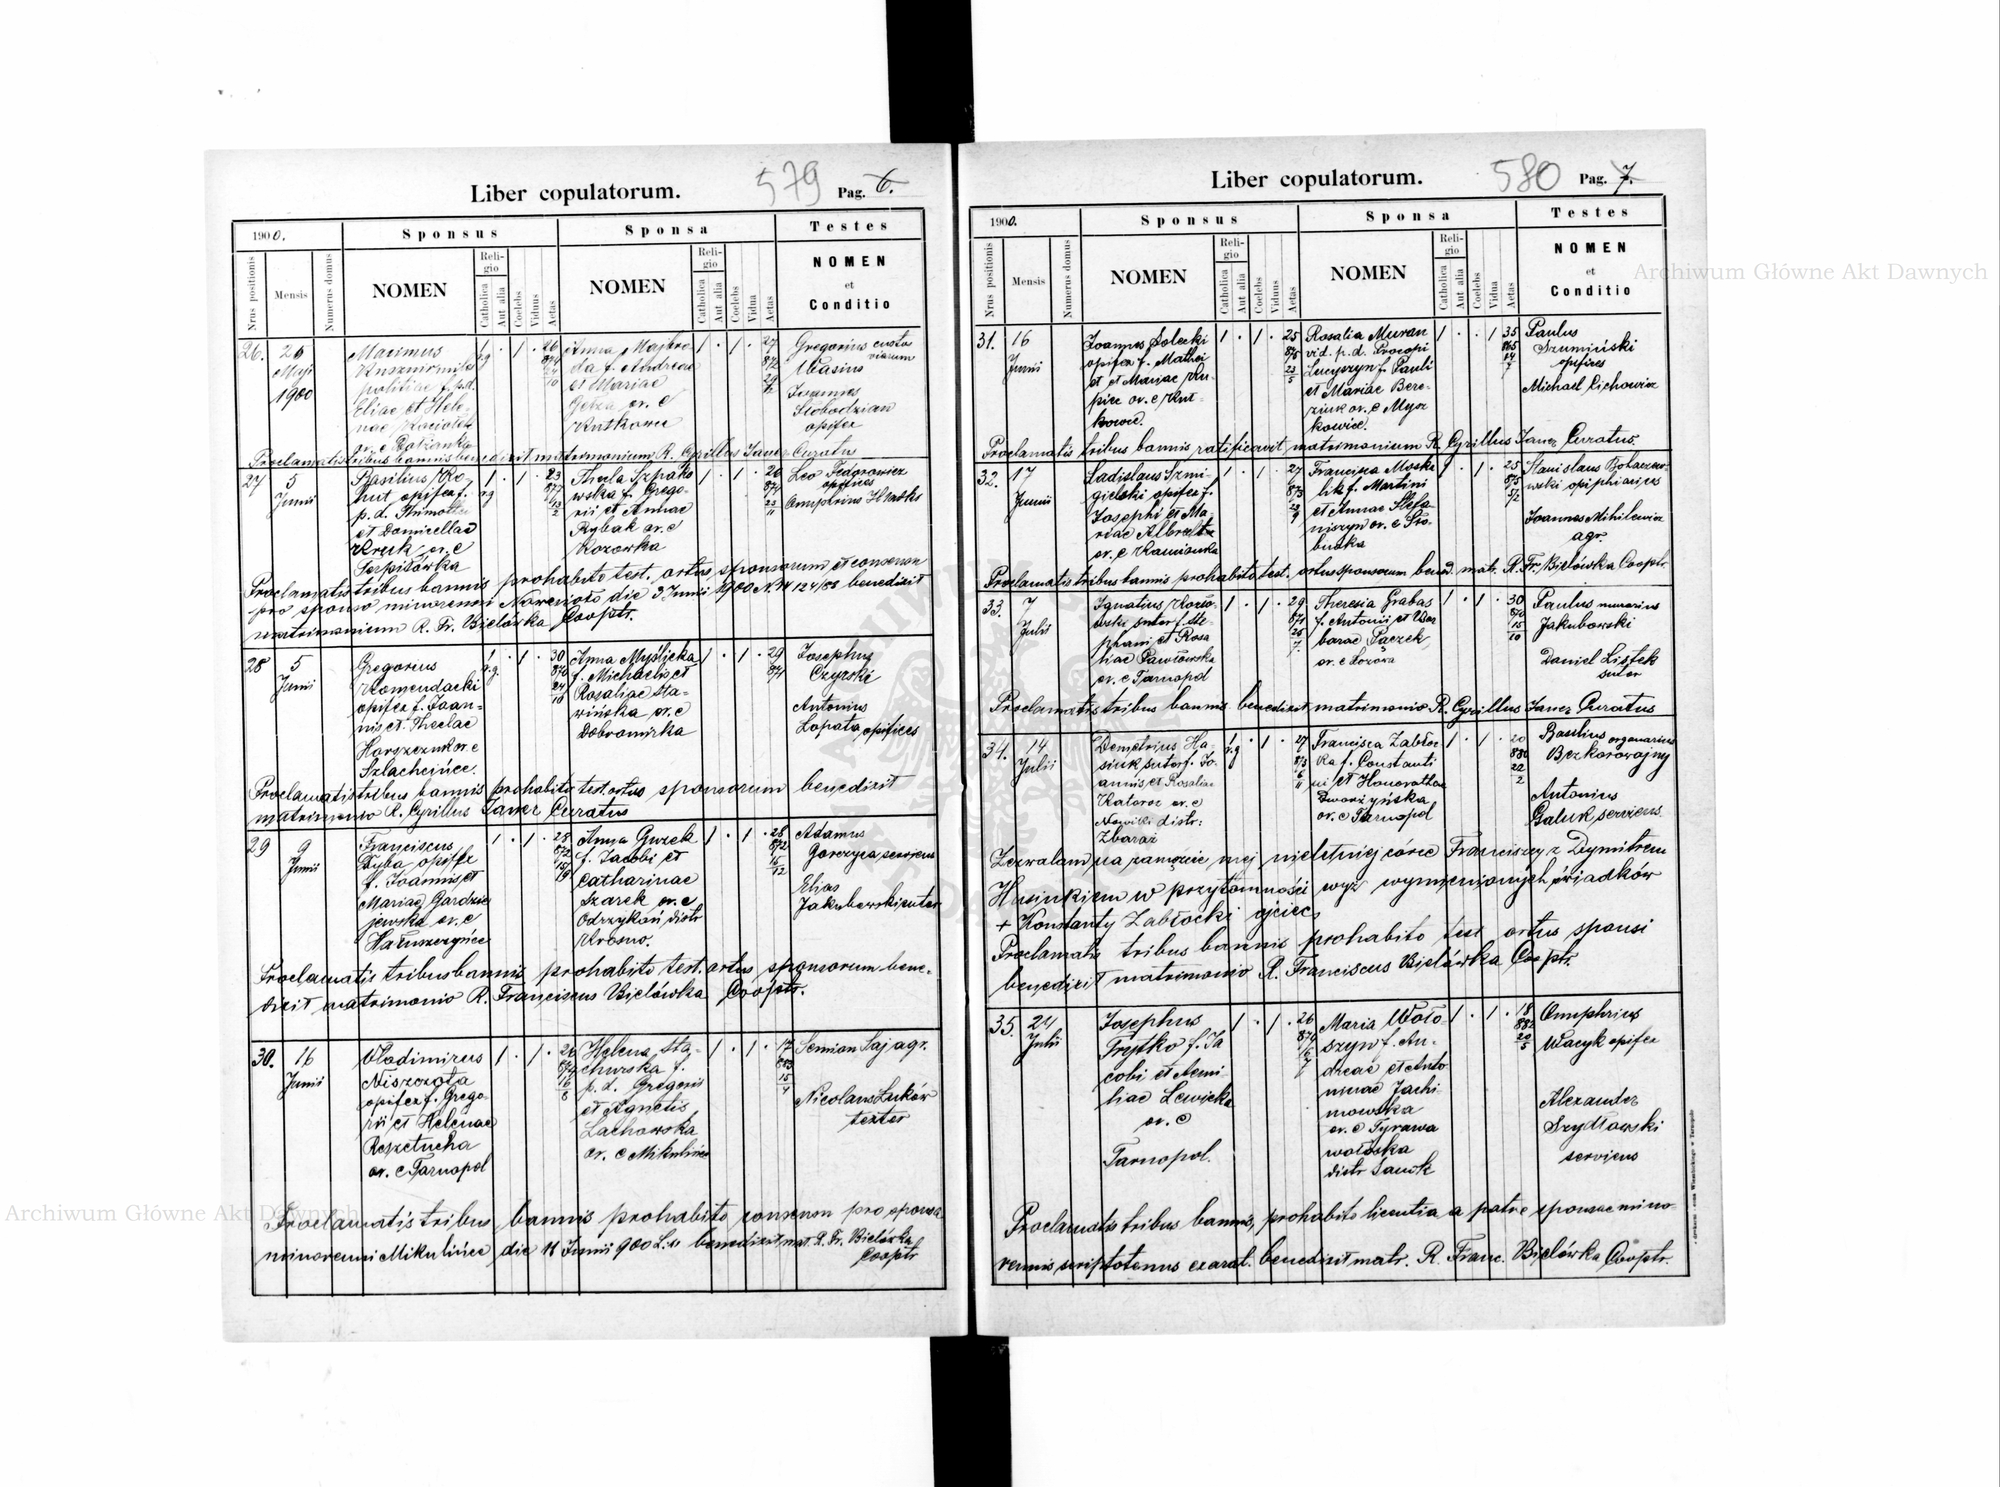 Liber copulatorum.
579
Pag. 6.
1900.
Sponsus
Sponsa
Testes
Nrus positionis
Mensis
Numerus domus
NOMEN
Religio
Catholica
Aut alia
Coelebs
Viduus
Aetas
NOMEN
Religio
Catholica
Aut alia
Coelebs
Vidua
Aetas
NOMEN
et
Conditio
26.
Maji
1900
Maximus
opifex f. p. d.
Eliae et Hele-
nae
or. e
1
r.g
. 1 .
26
874
10
Anna
da f. Andreae
et Mariae
or. e
Krutkowce
1 . 1 .
27
872
Gregorius custos
viarum
Wasius
Joannes
Slobodzian
opifex
Proclamatis tribus bannis benedixit matrimonium R. Cyrillus Janer Curatus
27
5
Junii
Basilius Kro-
hut opifex f.
p. d.
et Domicellae
Kruk or. e
Serpilówka
1
r.g
. 1 .
23
877
13
2
Thecla Szpako
wska f. Grego-
rii et Annae
Rybak or. e
Kozowka
1 . 1 .
26
874
23
11
Leo Fedorowicz
opifices
Onuphrius Hladki
Proclamatis tribus bannis prohabito test. ortus sponsorum et consensu
pro sponso minorenni Nowesioło die 3 Junii 1900 N. 124/58 benedixit
matrimonium R. Fr. Bielówka Cooptr.
28
5
Junii
Gregorius
Komendacki
opifex f. Joan-
nis et Theclae
Harszczuk or. e
Szlachcińce.
1
r.g.
. 1 .
30
870
24
10
Anna Myślicka
f. Michaelis et
Rosaliae Sta-
wińska or. e
Dobromirka
1 . 1 .
29
871
Josephus
Czyrski
Antonius
Lopata opifices
Proclamatis tribus bannis prohabito test. ortus sponsorum benedixit
matrimonio R. Cyrillus Janer Curatus
29
9
Junii
Franciscus
Dyba opifex
f. Joannis et
Mariae Gardzie
jewska or. e
Hałuszczyńce
1 . 1 .
28
872
15
Anna Guzek
f. Jacobi et
Catharinae
Szarek or. e
Odrzykoń distr
Krosno.
1 . 1 .
28
872
15
12
Adamus
Gorczyca serviens
Elias
Jakubowski sutor
Proclamatis tribus bannis prohabito test. ortus sponsorum bene-
dixit matrimonio R. Franciscus Bielówka Cooptr.
30.
16
Junii
Vladimirus
Niszczota
opifex f. Grego-
rii et Helenae
Reszetucha
or. e Tarnopol
1 . 1 .
26
874
16
8
Helena Sta-
churska f.
p. d. Gregorii
et Agnetis
Lachowska
or. e Mikulińce
1 . 1 .
17
883
15
4
Semion Saj agr.
Nicolaus Łuków
textor
Proclamatis tribus bannis prohabito consensu pro sponsa
minorenni Mikulińce die 11 Junii 900 L. benedixit mat. R. Fr. Bielówka
Cooptr
Liber copulatorum.
580
Pag. 7.
1900.
Sponsus
Sponsa
Testes
Nrus positionis
Mensis
Numerus domus
NOMEN
Religio
Catholica
Aut alia
Coelebs
Viduus
Aetas
NOMEN
Religio
Catholica
Aut alia
Coelebs
Vidua
Aetas
NOMEN
et
Conditio
31.
16
Junii
Joannes Solecki
opifex f. Mathei
et Mariae Ku-
piec or. e Kut-
kowce.
1 . 1 .
25
875
23
5
Rosalia Muran
vid. p. d. Procopi
Lucyszyn f. Pauli
et Mariae Bere-
ziuk or. e Mysz
kowice.
1 . . 1
35
865
Paulus
Szumiński
opifices
Michael Cichowicz
Proclamatis tribus bannis ratificavit matrimonium R. Cyrillus Janer Curatus.
32.
17
Junii
Ladislaus Szmi-
gielski opifex f.
Josephi et Ma-
riae Albrecht
or. e Kamionka
1 . 1 .
27
873
Francisca Moska
lik f. Martini
et Annae Stefa-
niszyn or. e Sło-
budka
1 . 1 .
25
875
5/2
Stanislaus Bohaczew-
wski
Joannes Mihilewicz
agr.
Proclamatis tribus bannis prohabito test. ortus sponsorum bened. matr. R. Fr. Bielówka Cooptr
33.
7
Julii
Ignatius Kozło-
wski sutor f. Ste-
phani et Rosa
liae Pawłowska
or. e Tarnopol
1 . 1 .
29
871
25
7
Theresia Grabas
f. Antonii et Bar
barae Pączek
or. e Łozowa
1 . 1 .
30
870
15
10
Paulus murarius
Jakubowski
Daniel Listek
sutor
Proclamatis tribus bannis benedixit matrimonio R. Cyrillus Janer Curatus
34.
14
Julii
Demetrius Ha-
siuk sutor f. Jo-
annis et Rosaliae
Kaloroz or. e
Nowiki distr:
Zbaraż
1
r.g
. 1 .
27
873
6
11
Francisca Zabłoc
ka f. Constanti
ni et Honorathae
Dworżyńska
or. e Tarnopol
1 . 1 .
20
880
22
2
Basilius organarius
Bezkorowajny
Antonius
Galuk serviens.
Zezwalam na zamęzcie mej nieletniej córce Franciszce z Dymitrem
Hasiukiem w przytomności wyż wymienionych świadków
+ Konstanty Zabłocki ojciec.
Proclamatis tribus bannis prohabito test. ortus sponsi
benedixit matrimonio R. Franciscus Bielówka Cooptr.
35.
24
Julii
Josephus
Trytko f. Ja
cobi et Aemi
liae Lewicka
or. e
Tarnopol.
1 . 1 .
26
874
Maria Woło-
szyn f. An-
dreae et Anto
ninae Jachi
mowska
or. e Tyrawa
wołoska
distr Sanok
1 . 1 .
18
882
20
5
Onuphrius
Wacyk opifex
Alexander
Szydłowski
serviens
Proclamatis tribus bannis, prohabito licentia a patre sponsae mino-
rennis scriptotenus exarat. benedixit matr. R. Franc. Bielówka Cooptr.
Archiwum Główne Akt Dawnych
Archiwum Główne Akt Dawnych